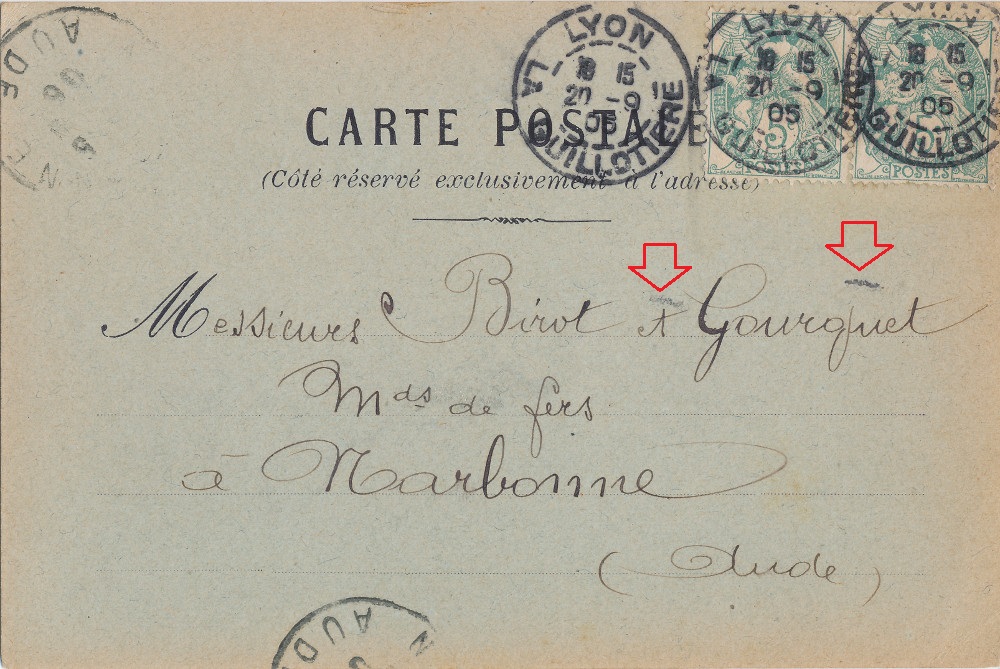 LYON
18 15
20 -9
05
LA GUILLOTIERE
LYON
18 15
20 -9
05
LA GUILLOTIERE
LYON
18 15
20 -9
05
GUILLOTIERE
5
POSTES
5
POSTES
AUDE
CARTE POSTALE
(Côté réservé exclusivement à l'adresse)
Messieurs Birot & Gourguet
Mds de fers
à Narbonne
(Aude)
AUD